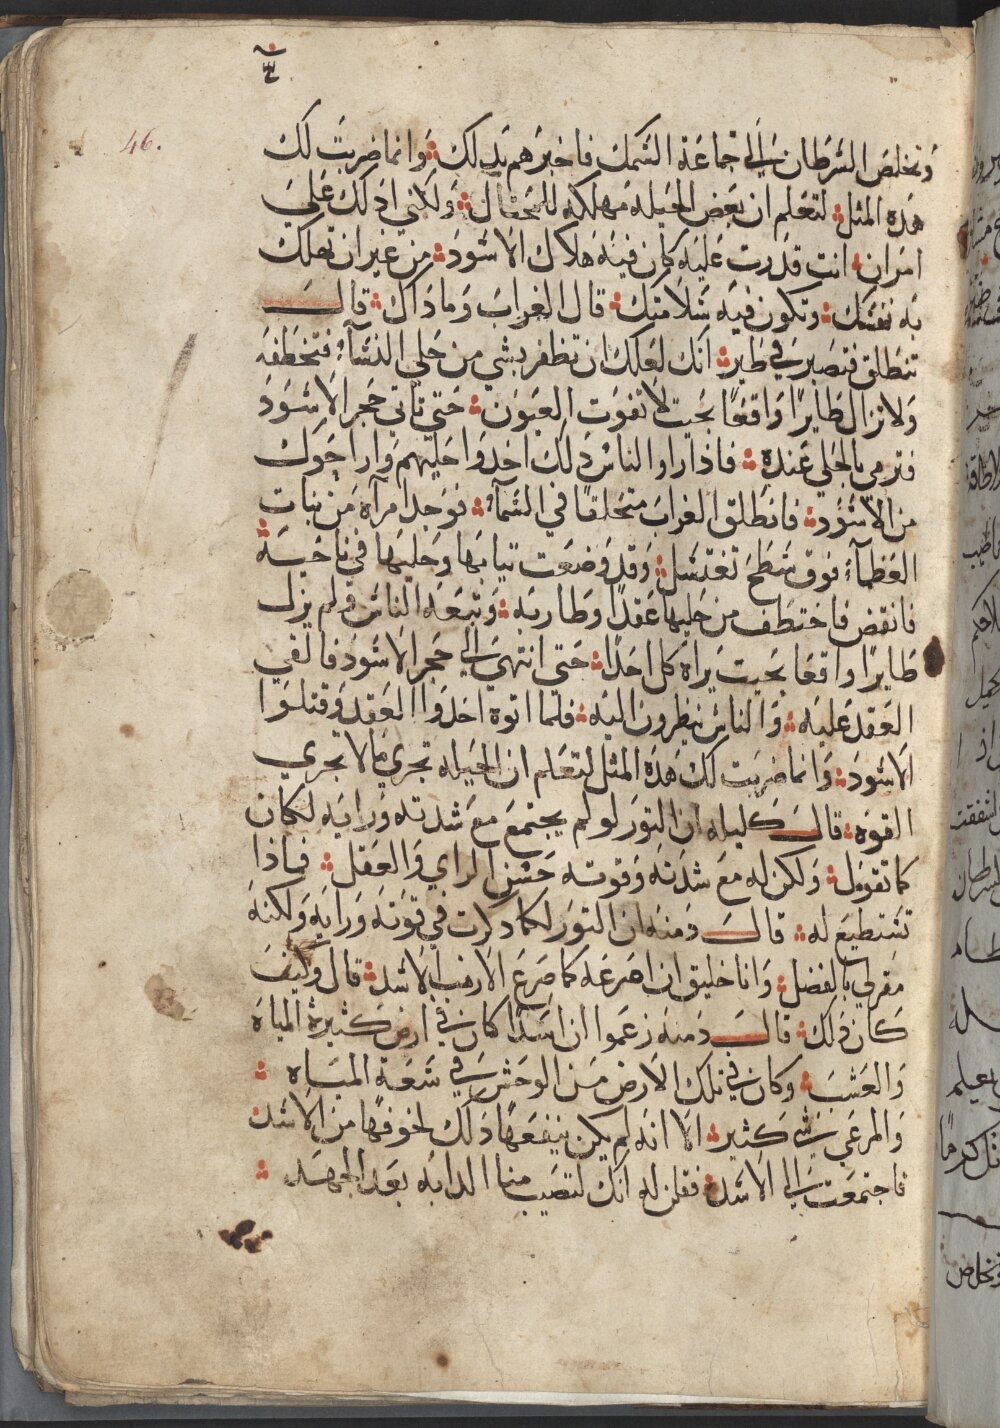 46.
وتخلص السرطان الى جماعة السمك فاخبرهم بدلك وانما ضربت لك
هده المثل لتعلم ان بعض الحيله مهلكه للمحتال ولكني ادلك علي
امران انت قدرت عليه كان فيه هلاك الاسود من غير ان تهلك
به نفسك وتكون فيه سلامتك قال الغراب وما داك قال
تنطلق فتصير في طير انك لعلك ان تظفر بشي من حلي النساء فتخطفه
ولا تزال طايرا واقعا بحيت لا تفوت العيون حتي تاتي حجر الاسود
فترمي بالحلي عنده فاذا راوا الناس دلك اخدوا حليهم واراحوك
من الاسود فانطلق الغراب متحلقا في السماء فوجد امراه من بنات
العظماء فوق سطح تغتسل وقد وضعت تيابها وحليها في ناحيه
فانقض فاختطف من حليها عقدا وطار به وتبعه الناس فلم يزل
طايرا واقعا بحيت يراه كل احدا حتى انتهى الى حجر الاسود فالقي
العقد عليه والناس ينظرون اليه فلما اتوه اخدوا العقد وقتلوا
الاسود وانما ضربت لك هده المثل لتعلم ان الحيله تجري مالا تجري
القوه قال كليله ان التور لو لم يجتمع مع شدته ورايه لكان
كما تقول ولكن له مع شدته وقوته حسن الراي والعقل فماذا
تستطيع له قال دمنه ان التور لكما دكرت في قوته ورايه ولكنه
مقر لي بالفضل وانا خليق ان اصرعه كما صرع الارنب الاسد قال وكيف
كان دلك قال دمنه زعموا ان اسدا كان في ارض كثيرة المياه
والعشب وكان في تلك الارض من الوحش في سعة المياه
والمرعي شي كثير الا انه لم يكن ينفعها دلك لخوفها من الاسد
فاجتمعت الى الاسد فقلن له انك لتصيب منا الدابه بعد الجهد